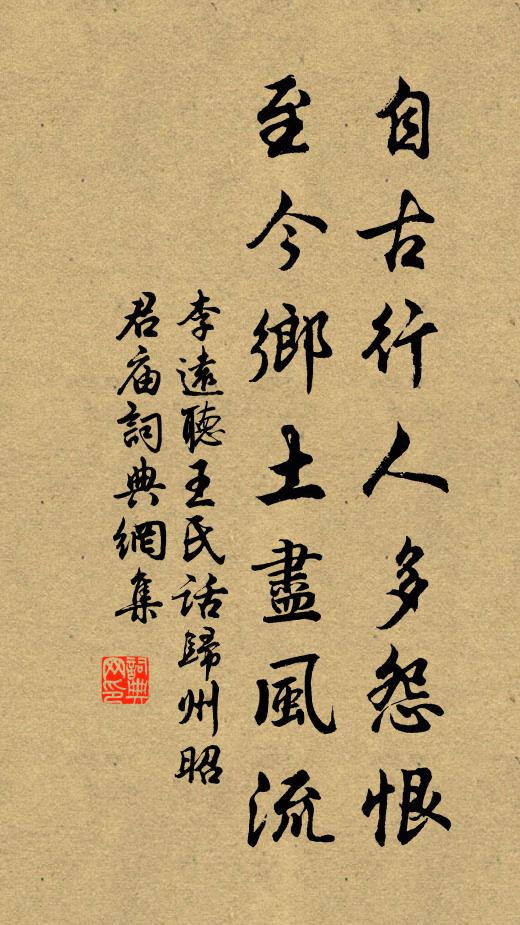 自古行人多怨恨
至今鄉土盡風流
李遠聽王氏話歸州昭
君庙詞典網集
詞典
网印